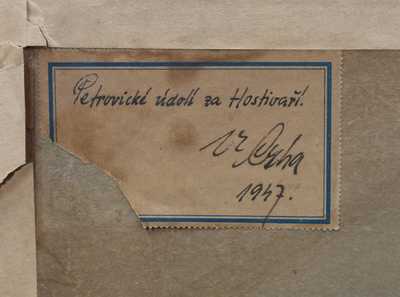 Petrovické údolí za Hostivaří.
1947.